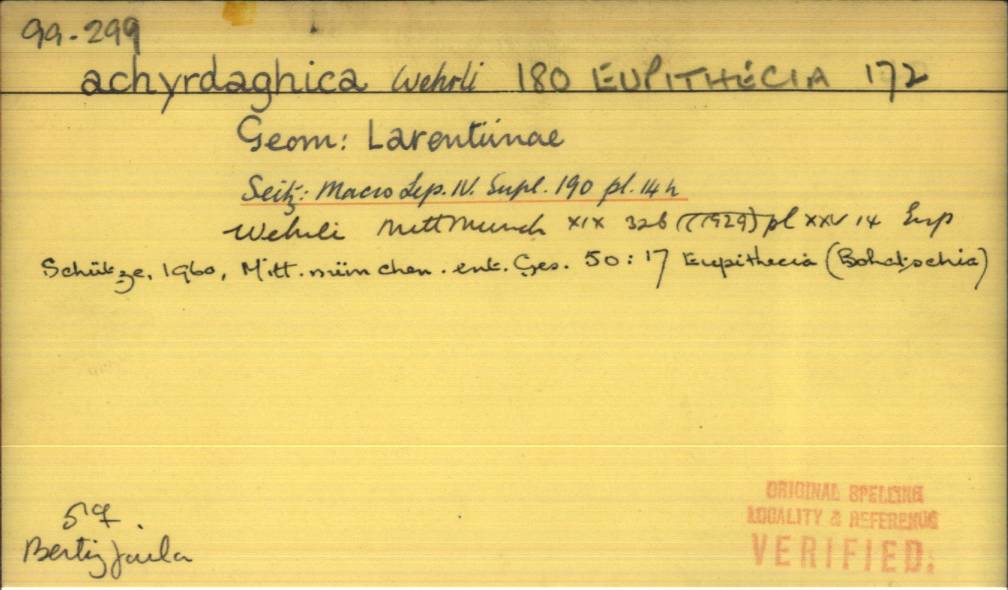 99-299
achyrdaghica Wehrli 180 EUPITHÉCIA 172
Geom: Larentiinae
Seitz: Macro Lep. IV. Supl. 190 pl. 14 h
Wehrli Mitt Münch XIX 326 (1929) pl XXV 14 Eup
Schütze, 1960, Mitt. münchen. ent. Ges. 50: 17 Eupithecia (Bohatschia)
5 ♀
ORIGINAL SPELLING
LOCALITY & REFERENCE
VERIFIED.